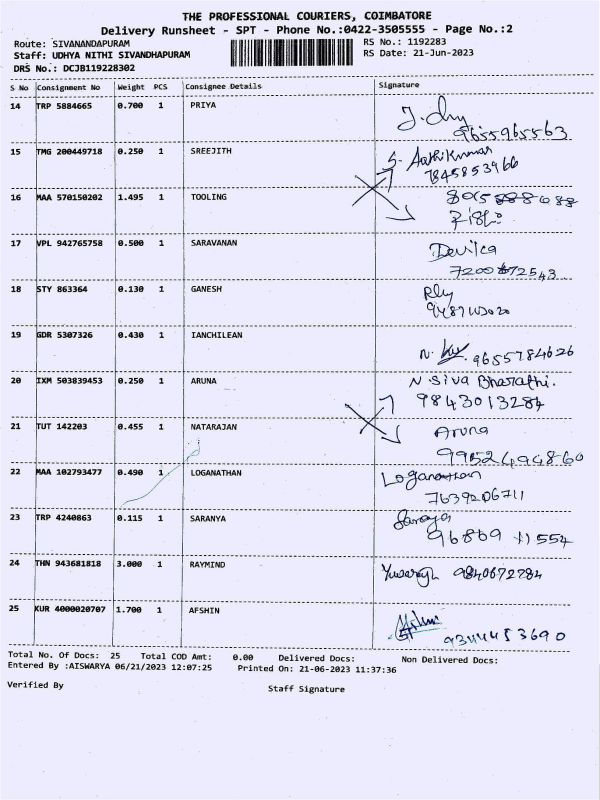 THE PROFESSIONAL COURIERS, COIMBATORE
Delivery Runsheet - SPT - Phone No.:0422-3505555 - Page No.:2
Route: SIVANANDAPURAM RS No.: 1192283
Staff: UDHYA NITHI SIVANDHAPURAM RS Date: 21-Jun-2023
DRS No.: DCJB119228302
S No Consignment No Weight PCS Consignee Details Signature
14 TRP 5884665 0.700 1 PRIYA
9655965563
15 TMG 200449718 0.250 1 SREEJITH S. Aathikumar
7845853966
16 MAA 570150202 1.495 1 TOOLING
17 VPL 942765758 0.500 1 SARAVANAN Devika
18 STY 863364 0.130 1 GANESH
19 GDR 5307326 0.430 1 IANCHILEAN
9655784626
20 IXM 503839453 0.250 1 ARUNA N. Siva Bharathi.
9843013284
21 TUT 142203 0.455 1 NATARAJAN Aruna
9952494860
22 MAA 102793477 0.490 1 LOGANATHAN Loganathan
7639206711
23 TRP 4240863 0.115 1 SARANYA
96869 11554
24 THN 943681818 3.000 1 RAYMIND 9840672784
25 KUR 4000020707 1.700 1 AFSHIN
9344453690
Total No. Of Docs: 25 Total COD Amt: 0.00 Delivered Docs: Non Delivered Docs:
Entered By :AISWARYA 06/21/2023 12:07:25 Printed On: 21-06-2023 11:37:36
Verified By Staff Signature